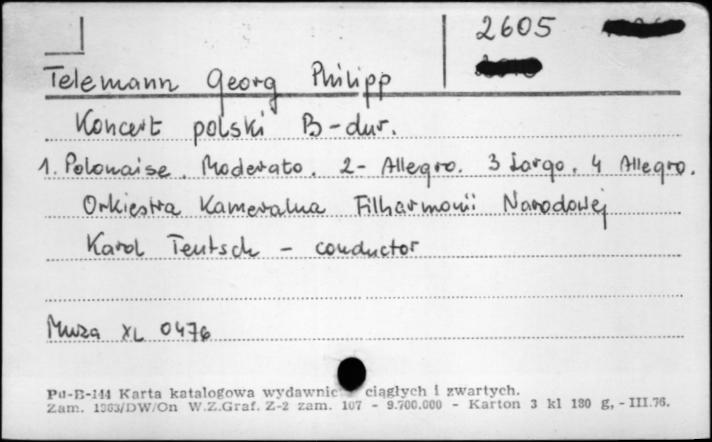 2605
Telemann Georg Philipp
Koncert polski B-dur.
1. Polonaise. Moderato. 2- Allegro. 3 Largo. 4 Allegro.
Orkiestra Kameralna Filharmonii Narodowej
Karol Teutsch - conductor
Muza XL 0476
Pu-B-144 Karta katalogowa wydawnic ciągłych i zwartych.
Zam. 1363/DW/On W.Z.Graf. Z-2 zam. 107 - 9.700.000 - Karton 3 kl 180 g, - III.76.